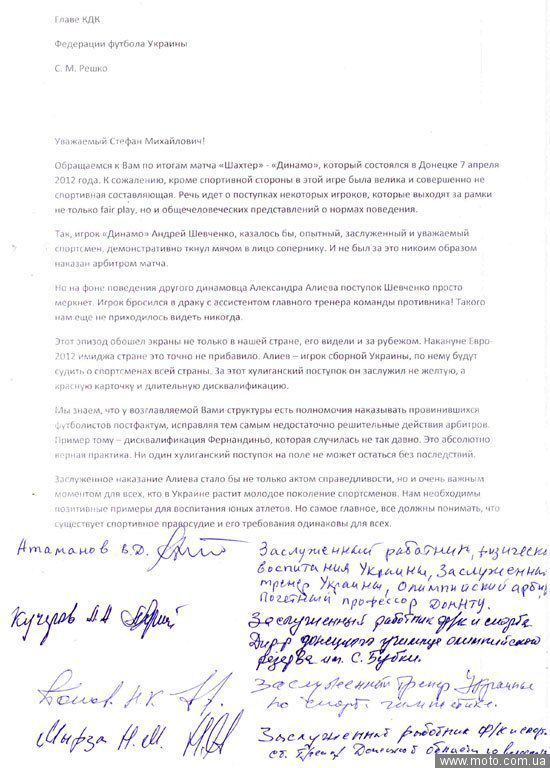 Главе КДК
Федерации футбола Украины
С. М. Решко
Уважаемый Стефан Михайлович!
Обращаемся к Вам по итогам матча «Шахтер» - «Динамо», который состоялся в Донецке 7 апреля
2012 года. К сожалению, кроме спортивной стороны в этой игре была велика и совершенно не
спортивная составляющая. Речь идет о поступках некоторых игроков, которые выходят за рамки
не только fair play, но и общечеловеческих представлений о нормах поведения.
Так, игрок «Динамо» Андрей Шевченко, казалось бы, опытный, заслуженный и уважаемый
спортсмен, демонстративно ткнул мячом в лицо сопернику. И не был за это никоим образом
наказан арбитром матча.
Но на фоне поведения другого динамовца Александра Алиева поступок Шевченко просто
меркнет. Игрок бросился в драку с ассистентом главного тренера команды противника! Такого
нам еще не приходилось видеть никогда.
Этот эпизод обошел экраны не только в нашей стране, его видели и за рубежом. Накануне Евро-
2012 имиджа стране это точно не прибавило. Алиев – игрок сборной Украины, по нему будут
судить о спортсменах всей страны. За этот хулиганский поступок он заслужил не желтую, а
красную карточку и длительную дисквалификацию.
Мы знаем, что у возглавляемой Вами структуры есть полномочия наказывать провинившихся
футболистов постфактум, исправляя тем самым недостаточно решительные действия арбитров.
Пример тому – дисквалификация Фернандиньо, которая случилась не так давно. Это абсолютно
верная практика. Ни один хулиганский поступок на поле не может остаться без последствий.
Заслуженное наказание Алиева стало бы не только актом справедливости, но и очень важным
моментом для всех, кто в Украине растит молодое поколение спортсменов. Нам необходимы
позитивные примеры для воспитания юных атлетов. Но самое главное, все должны понимать, что
существует спортивное правосудие и его требования одинаковы для всех.
Атаманов В.Д. Заслуженный работник физическо
воспитания Украины, Заслуженный
тренер Украины, Олимпийский арби
Почетный профессор ДонНТУ.
Кучеров Заслуженный работник ф/к и спорта
Дир-р донецкого училища олимпийского
резерва им. С. Бубки.
Заслуженный тренер Украины
по спорт. гимнастике.
Мырза Н.М. Заслуженный работник ф/к и спор.
ст. тренер Донецкой области
www.moto.com.ua